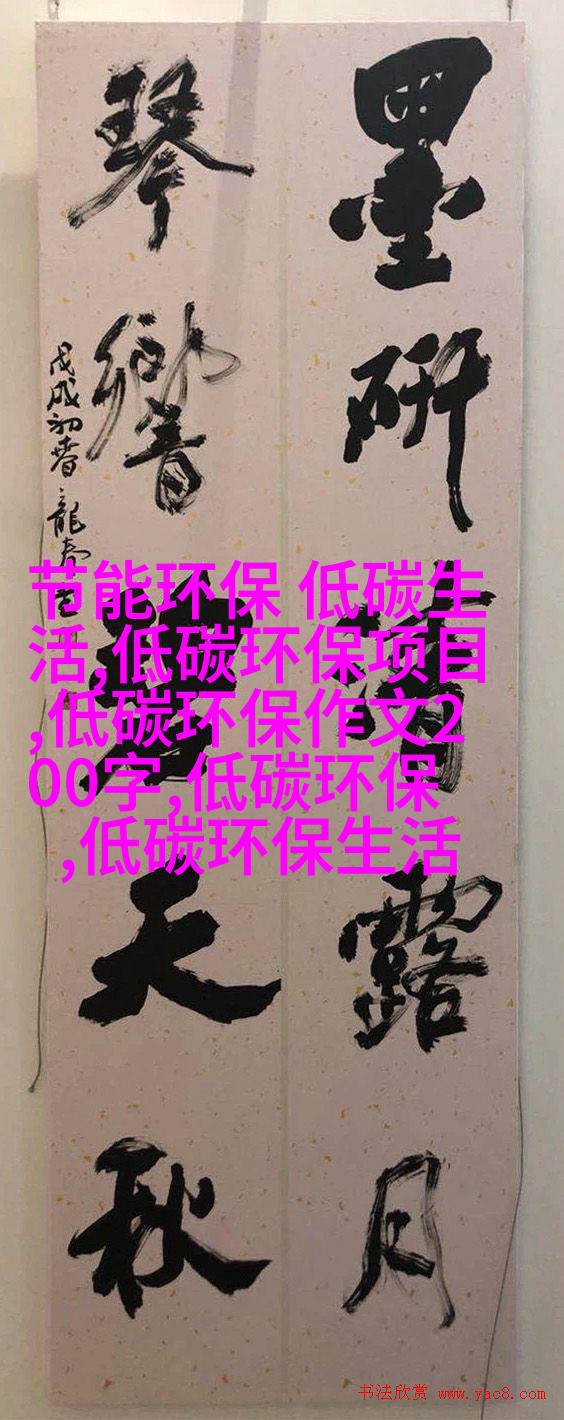 墨研清露月
琴響碧天秋
戊戌初春 龍
节能环保 低碳生
活,低碳环保项目
,低碳环保作文2
00字,低碳环保
,低碳环保生活
书法欣赏 www.yac8.com